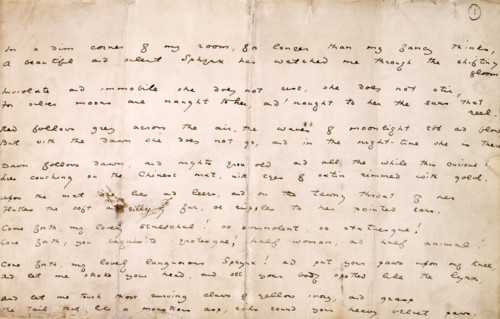 1
In a dim corner of my room, for longer than my fancy thinks,
A beautiful and silent Sphynx has watched me through the shifting
gloom
Inviolate and immobile she does not rise, she does not stir,
For silver moons are naught to her, and naught to her the suns that
reel.
Red follows grey across the air, the waves of moonlight ebb and flow
But with the Dawn she does not go, and in the night-time she is there
Dawn follows Dawn, and nights grow old and all the while this curious
lies couching on the Chinese mat, with eyes of satin rimmed with gold,
upon the mat she lies and leers, and on the tawny throat of her
flutters the soft and silky fur, or ripples to her pointed ears.
Come forth my lovely seneschal! so somnolent, so statuesque!
Come forth, you exquisite grotesque! half woman, and half animal!
Come forth, my lovely languorous Sphynx! and put your paws upon my knee
and let me stroke your head, and see your body spotted like the lynx,
and let me touch those curving claws of yellow ivory, and grasp
the tail that like a monstrous asp, coils round your heavy velvet paws.